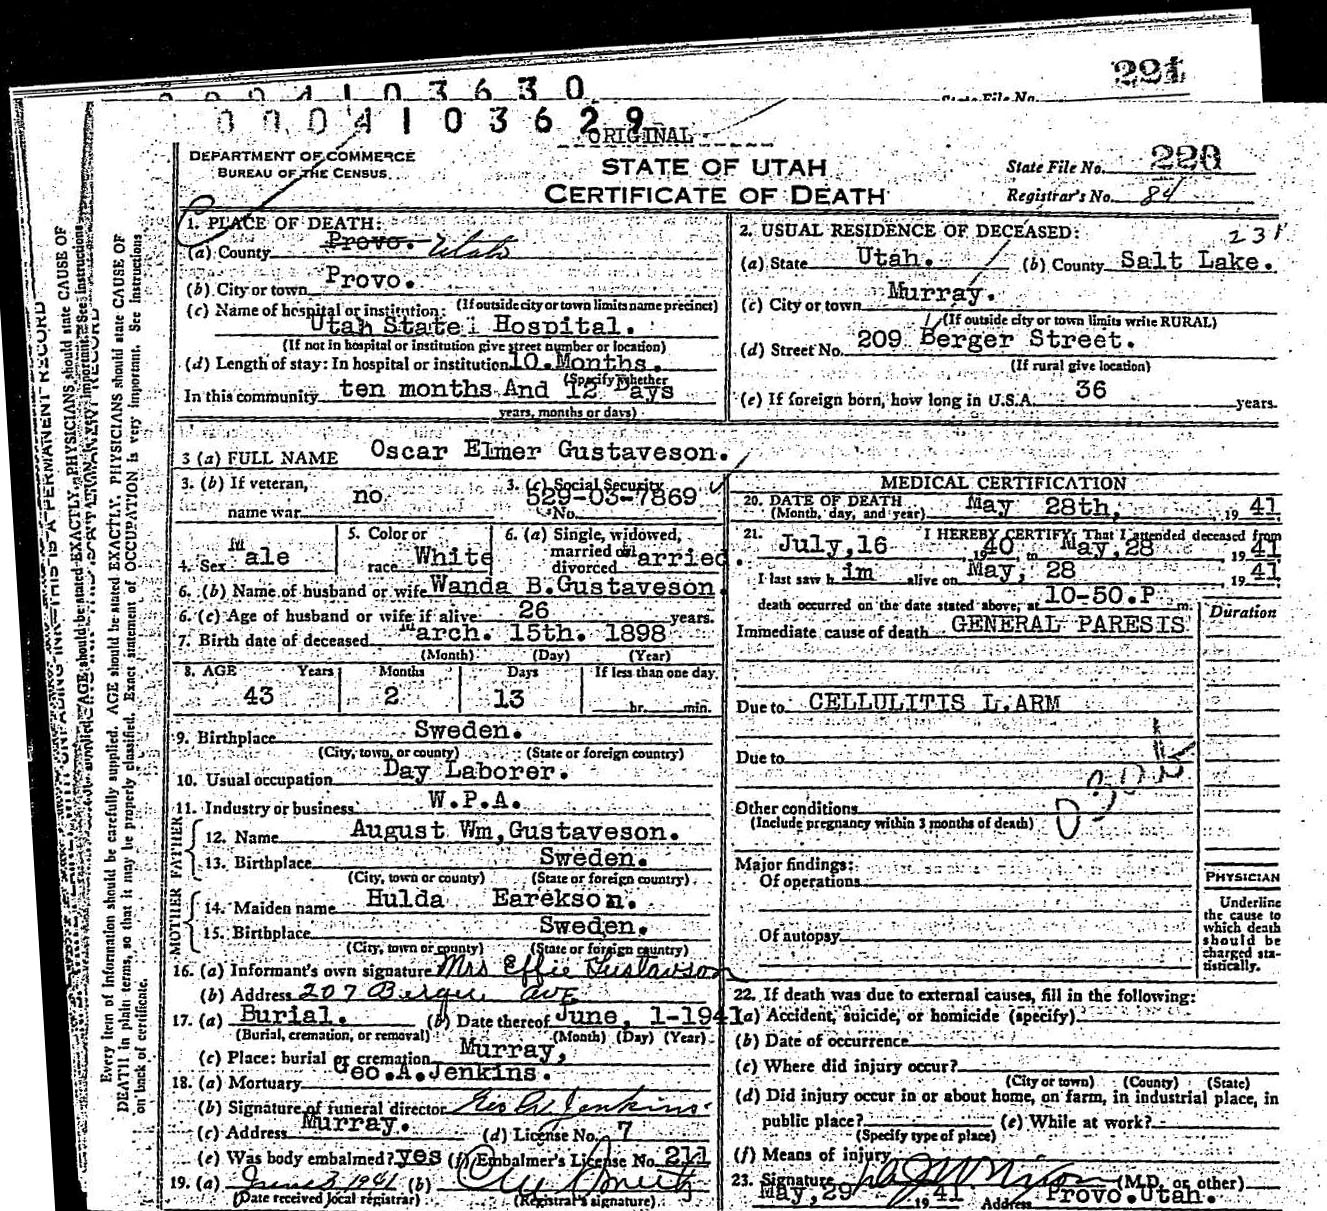 221
0004103630
State File No.
0004103629
ORIGINAL
DEPARTMENT OF COMMERCE
BUREAU OF THE CENSUS
STATE OF UTAH
CERTIFICATE OF DEATH
State File No. 220
Registrar's No. 84
1. PLACE OF DEATH:
(a) County Provo. Utah
(b) City or town Provo.
(If outside city or town limits name precinct)
(c) Name of hospital or institution:
Utah State Hospital.
(If not in hospital or institution give street number or location)
(d) Length of stay: In hospital or institution 10 Months.
(Specify whether
In this community ten months And 12 Days
years, months or days)
2. USUAL RESIDENCE OF DECEASED:
231
(a) State Utah. (b) County Salt Lake.
(c) City or town Murray.
(If outside city or town limits write RURAL)
(d) Street No. 209 Berger Street.
(If rural give location)
(e) If foreign born, how long in U.S.A. 36 years.
3 (a) FULL NAME Oscar Elmer Gustaveson.
3. (b) If veteran,
name war no
3. (c) Social Security
No. 529-03-7869
4. Sex Male
5. Color or
race White
6. (a) Single, widowed,
married or
divorced Married
6. (b) Name of husband or wife Wanda B.Gustaveson.
6. (c) Age of husband or wife if alive 26 years.
7. Birth date of deceased March. 15th. 1898
(Month) (Day) (Year)
8. AGE Years Months Days If less than one day
43 2 13 hr. min.
9. Birthplace Sweden.
(City, town, or county) (State or foreign country)
10. Usual occupation Day Laborer.
11. Industry or business W.P.A.
FATHER
12. Name August Wm,Gustaveson.
13. Birthplace Sweden.
(City, town or county) (State or foreign country)
MOTHER
14. Maiden name Hulda Earekson.
15. Birthplace Sweden.
(City, town or county) (State or foreign country)
16. (a) Informant's own signature Mrs Effie Gustavson
(b) Address 207 Berger ave
17. (a) Burial. (b) Date thereof June, 1-1941
(Burial, cremation, or removal) (Month) (Day) (Year)
(c) Place: burial or cremation Murray,
18. (a) Mortuary Geo.A.Jenkins.
(b) Signature of funeral director Geo A Jenkins
(c) Address Murray. (d) License No. 7
(e) Was body embalmed? yes (f) Embalmer's License No. 211
19. (a) June 3 1941 (b)
(Date received local registrar) (Registrar's signature)
MEDICAL CERTIFICATION
20. DATE OF DEATH
(Month, day, and year) May 28th, 19 41
21. I HEREBY CERTIFY: That I attended deceased from
July,16 1940 to May,28 19 41
I last saw h im alive on May, 28 19 41
death occurred on the date stated above, at 10-50.P m.
Duration
Immediate cause of death GENERAL PARESIS
Due to CELLULITIS L.ARM
Due to
Other conditions
(Include pregnancy within 3 months of death)
Major findings:
Of operations
Of autopsy
PHYSICIAN
Underline
the cause to
which death
should be
charged sta-
tistically.
22. If death was due to external causes, fill in the following:
(a) Accident, suicide, or homicide (specify)
(b) Date of occurrence
(c) Where did injury occur?
(City or town) (County) (State)
(d) Did injury occur in or about home, on farm, in industrial place, in
public place? (e) While at work?
(Specify type of place)
(f) Means of injury
23. Signature (M.D. or other)
May,29 19 41 Address Provo.Utah.
Every item of information should be carefully supplied. AGE should be stated EXACTLY. PHYSICIANS should state CAUSE OF
DEATH in plain terms, so that it may be properly classified. Exact statement of OCCUPATION is very important. See instructions
on back of certificate.